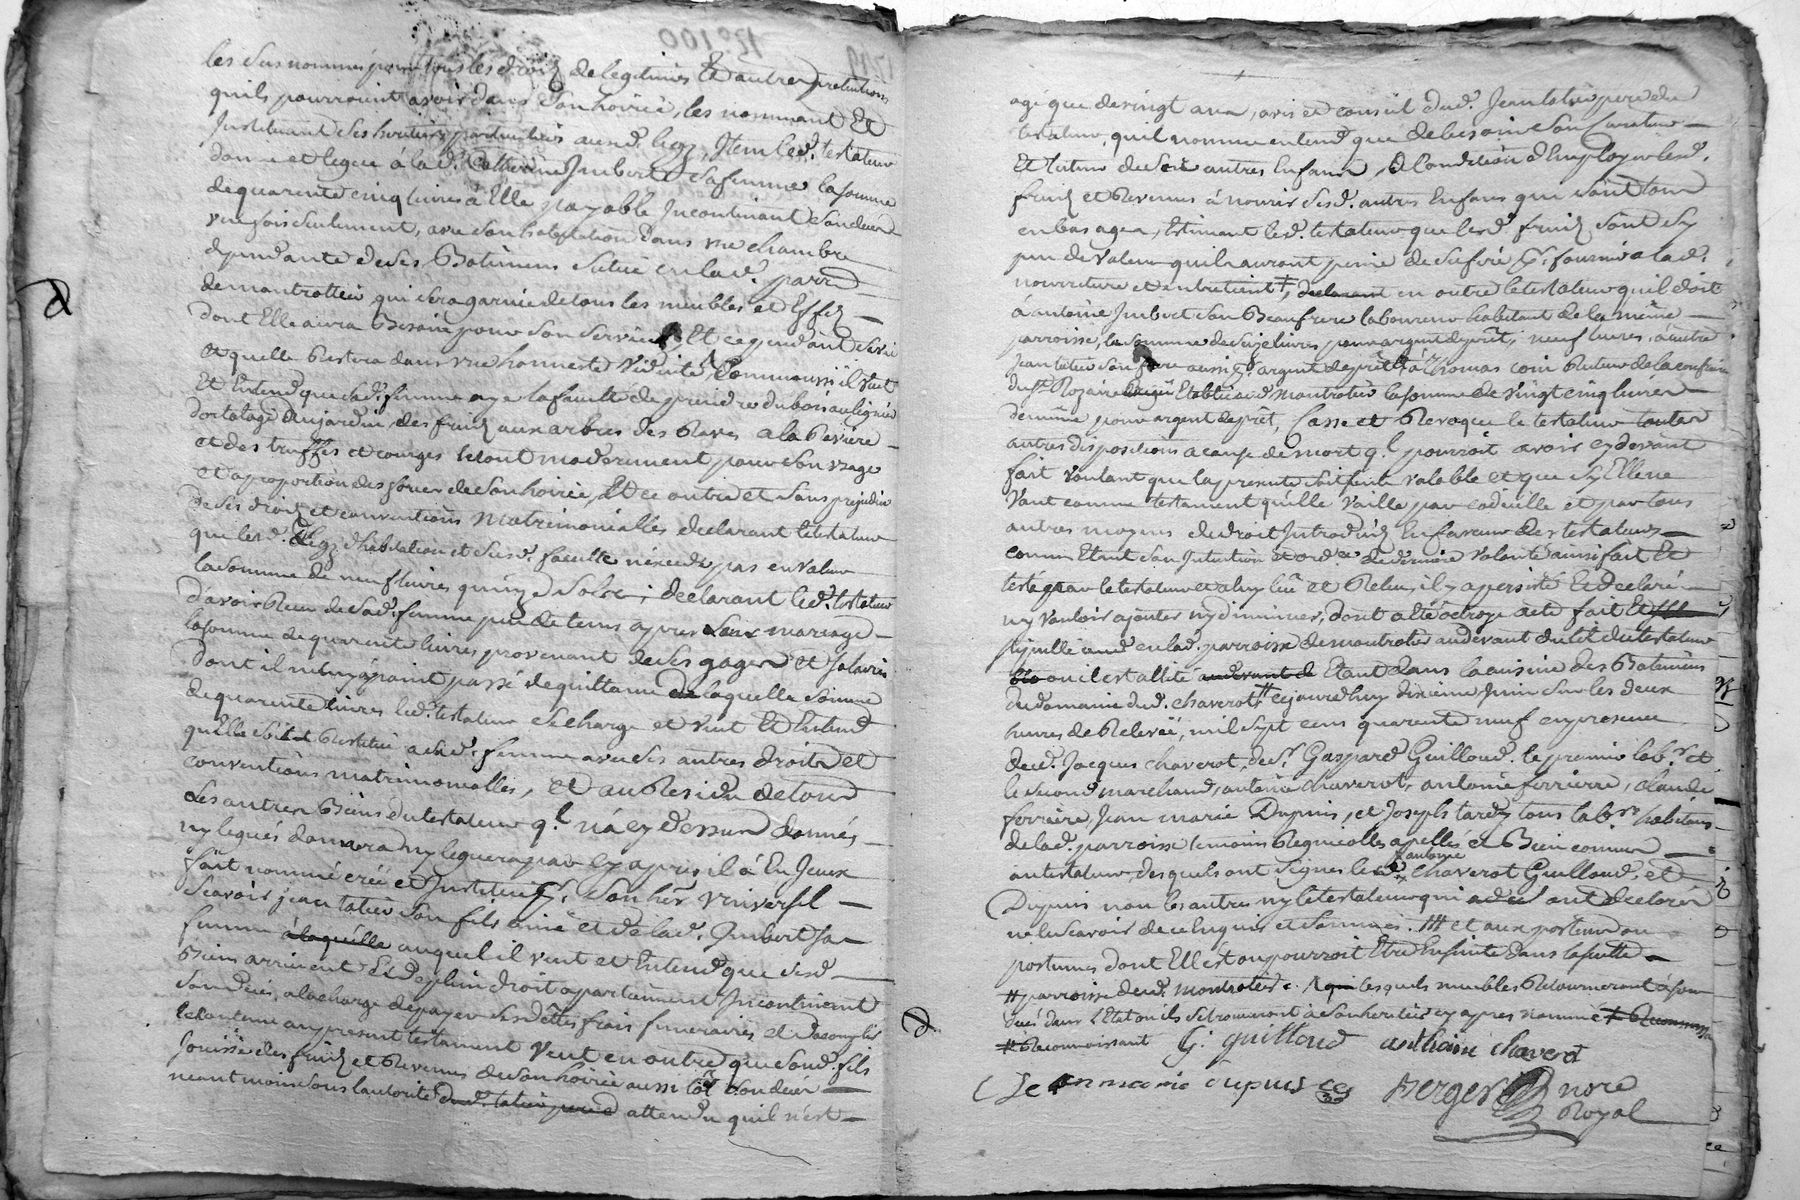 les susnommés pour tous les droits de legitimes Et autres pretentions
quils pourroint avoir dans son hoirie, les nommant Et
Instituant ses heritiers particuliers auxd. legz, Item led. testateur
donne et legue à lad. Catherine Imbert sa femme la somme
de quarente cinq livres à Elle payable Incontinant son deces
une fois seulement, avec son habitation dans une chambre
dependante de ses Batimens située en lad. parr.
de montrottier qui sera garnie de tous les meubles et Effets
dont Elle aura Besoin pour son service Et ce pendant sa vie
et quelle Restera dans une honneste viduité, Comm'aussi il veut
Et Entend que sad. femme aye la faculté de prendre du bois au ligner
dortolage du jardin, des fruits aux arbres des Raves a la Raviere
et des truffes et courges le tout moderement pour son usage
et a proportion des forces de son hoirie, Et ce outre et sans prejudice
de ses droits et conventions matrimonialles declarant le testateur
que lesd. Legz d'habitation et susd. faculté n'éxcede pas en valeur
la somme de neuf livres quinze sols; declarant led. testateur
d'avoir Receu de sad. femme peu de tems apres leur mariage
la somme de quarente livres provenant de ses gages et salaires
dont il ne luy a point passé de quittance de laquelle somme
de quarente livres led. testateur se charge et veut Et Entend
quelle soit Restituée a sad. femme avec ses autres droits et
conventions matrimonialles, et au Residu de tous
les autres Biens du testateur q.l n'a cy dessus donnés
ny legués donnera ny leguera par cy apres il à En Iceux
fait nommé créé et Institué p. son her universel
scavoir jean tatier son fils ainé et de lad. Imbert sa
femme à laquelle auquel il veut et Entend que sesd
Biens arrivent Et de plein droit apartiennent Incontinent
son deces, a la charge de payer ses dettes frais funeraires et d'acomplir
le contenu au present testament veut en outre que sond. fils
Jouisse des fruits et Revenus de son hoirie aussi tôt son deces
neantmoins sous l'autorité attendu quil n'est
agé que de vingt ans, avis et conseil dud. Jean tatier pere du
testateur, quil nomme entend que de besoin son Curateur
Et tuteur de ses autres Enfans, à Condition d'Employer lesd.
fruits et Revenus à nourir sesd. autres Enfans qui sont tous
en bas ages, Estimant led. testateur que lesd. fruits sont sy
peu de valeur quil auront peine de sufire p. fournir a lad.
nourriture et entretient, declarant en outre le testateur quil doit
à antoine Imbert son Beaufrere laboureur habitant de la même
parroisse, la somme de seize livres pour argent de prêt, neuf livres à autre
Jean tatier son frere aussi p. argent de prêt Et à thomas coin Recteur de la confrairie
du St. Rozaire Etablie aud. montrotier la somme de vingt cinq livres
de même pour argent de prêt, Casse et Revoque le testateur toutes
autres dispositions a cause de mort q.l pourroit avoir cy devant
fait voulant que la presente soit seule valable et que sy Elle ne
vaut comme testament qu'elle vaille par codicille et par tous
autres moyens de droit Introduits En faveur des testateurs
comm'Etant son Intention et ord.ce de derniere volonté aussi fait Et
testé par le testateur et a luy lû et Releu, il y a persisté Et declaré
ny vouloir ajouter ny diminuer, dont acte octroyé acte fait Et
stipullé aud. en lad. parroisse de montrotier au devant du lit du testateur
où il est allité au devant de Etant dans la cuisine des Batimens
du domaine dud. chaverot # cejourd'huy dixieme Juin sur les deux
heures de Relevée, mil sept cens quarente neuf en presence
dud. Jacques chaverot, de s.r Gaspard Guilloud, le premier lab.r et
le second marchand, antoine chaverot, antoine ferriere, claude
ferriere, Jean marie Dupuis, et Joseph tardy tous lab.rs habitans
de lad. parroisse temoins Requis et apellés et Bien connus
au testateur, desquels ont signés led. antoine chaverot Guilloud, et
Dupuis non les autres ny le testateur qui ont declarés
ne le scavoir de ce Enquis et sommés. ## et aux postumes ou
postumes dont Elle est ou pourroit Etre Ensinte dans la suitte
# parroisse dud. montrotier. lesquels meubles Retourneront a son
deces dans l'Etat ou ils se trouveront à son heritier cy apres nommé
# Reconnoissant G. guilloud anthoine chaverot
Jean marie dupuis Berger nore
Royal